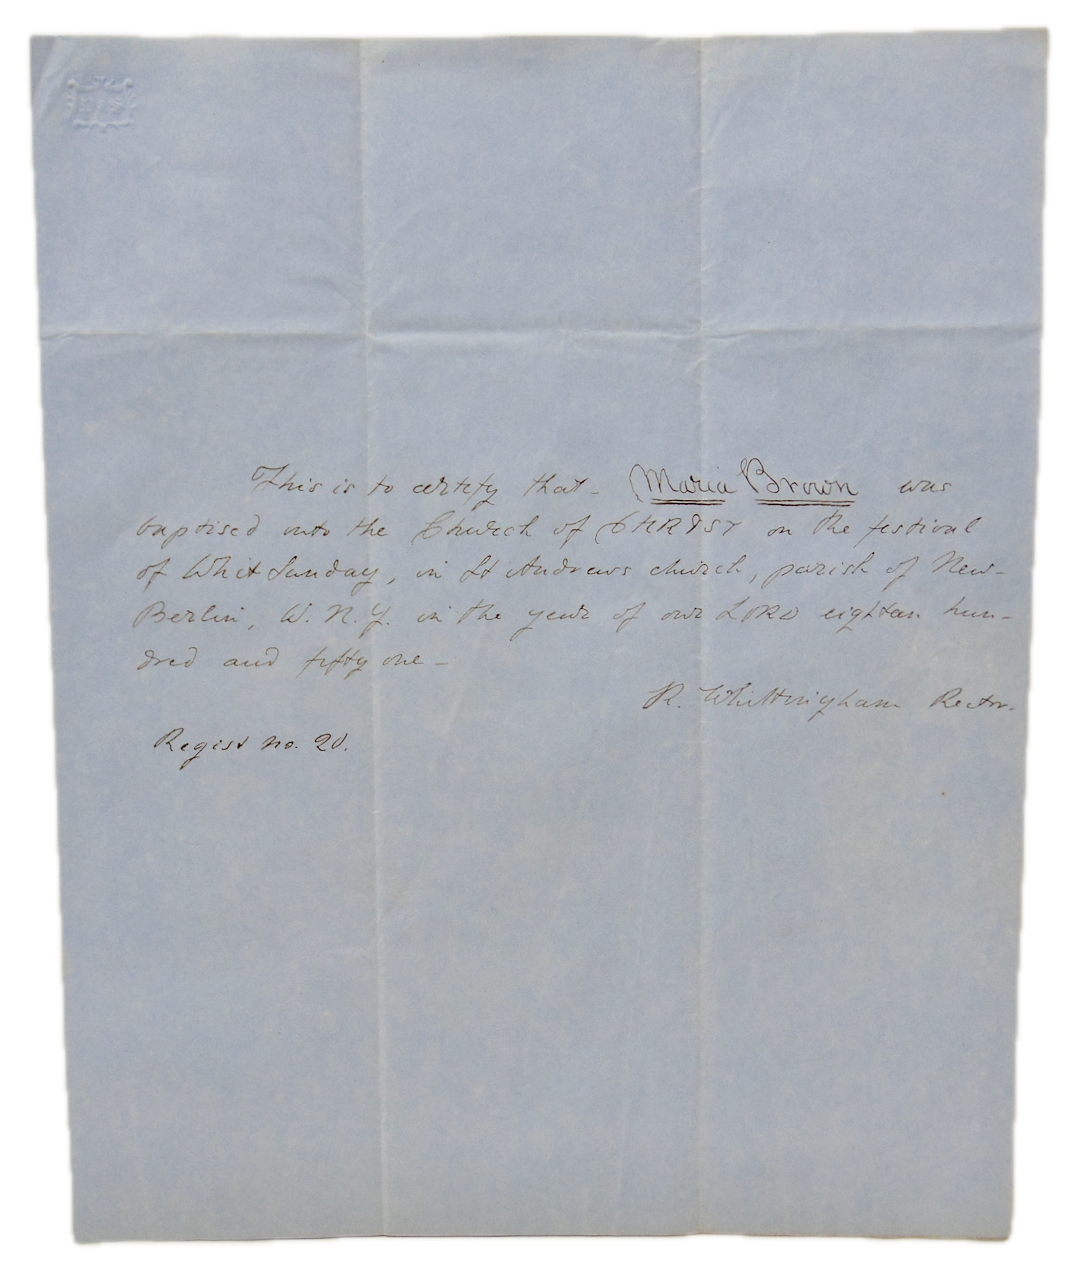 This is to certify that - Maria Brown was
baptised into the Church of CHRIST on the festival
of Whit Sunday, in St Andrews church, parish of New-
Berlin, W. N. Y. in the year of our LORD eighteen hun-
dred and fifty one -
R. Whittingham Rector.
Regist no. 20.